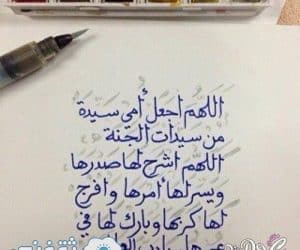 اللهم اجعل أمي سيدة
من سيدات الجنة
اللهم اشرح لها صدرها
ويسر لها أمرها وافرج
لها كربها وبارك لها في
عمرها